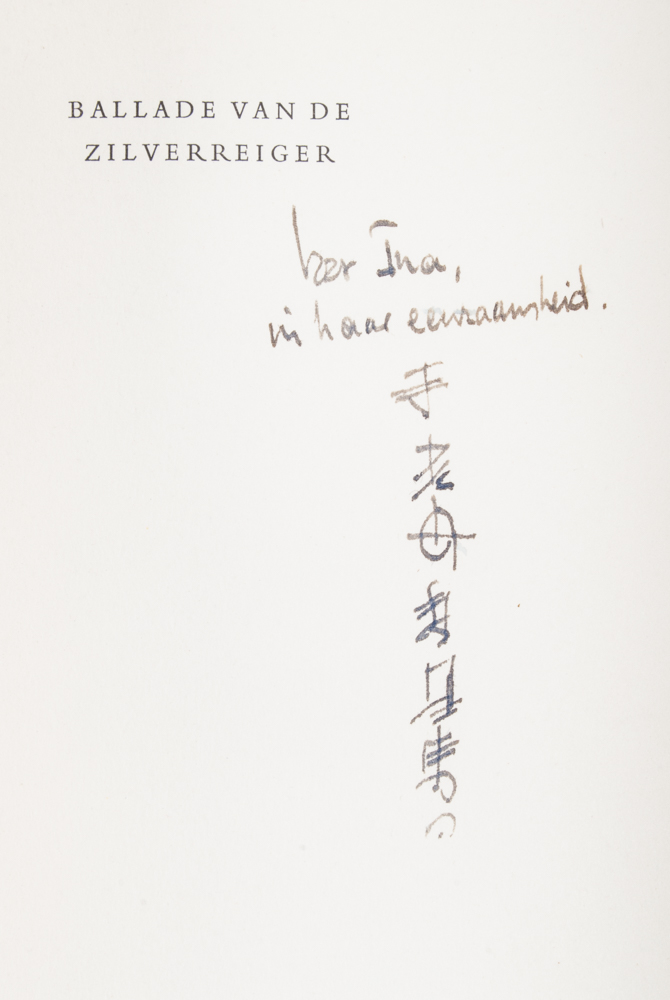 BALLADE VAN DE
ZILVERREIGER
Voor Ina,
in haar eenzaamheid.